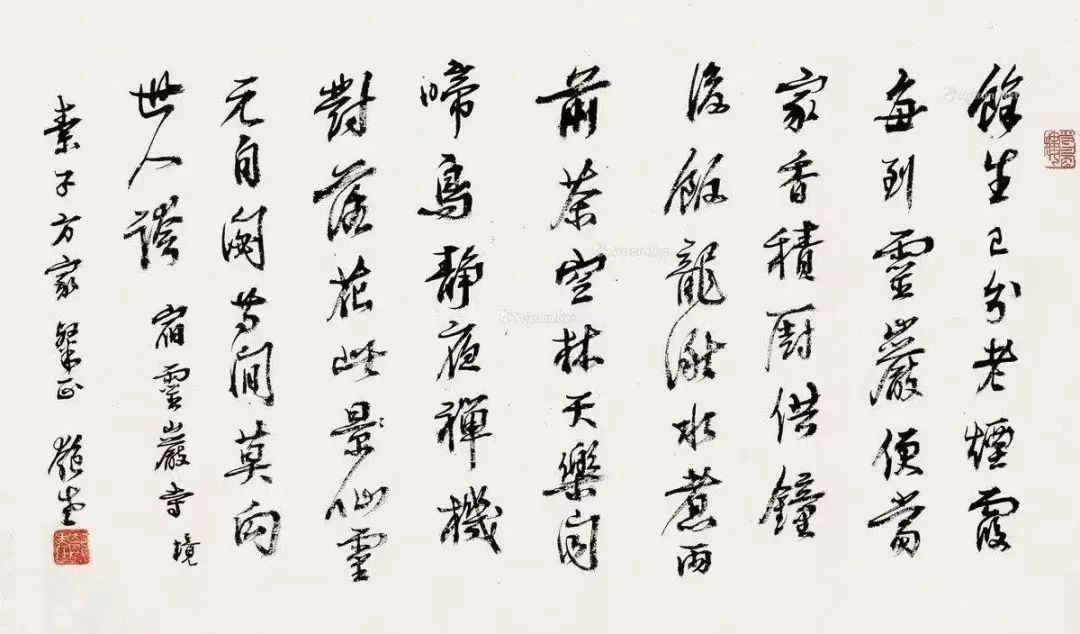 餘生已分老煙霞
每到靈巖便當
家香積廚供鐘
後飯龍湫水煮雨
前茶空林天樂聞
啼鳥靜夜禪機
對落花此景仙靈
元自閟等閒莫向
世人誇
宿靈巖寺 境
素子方家 正